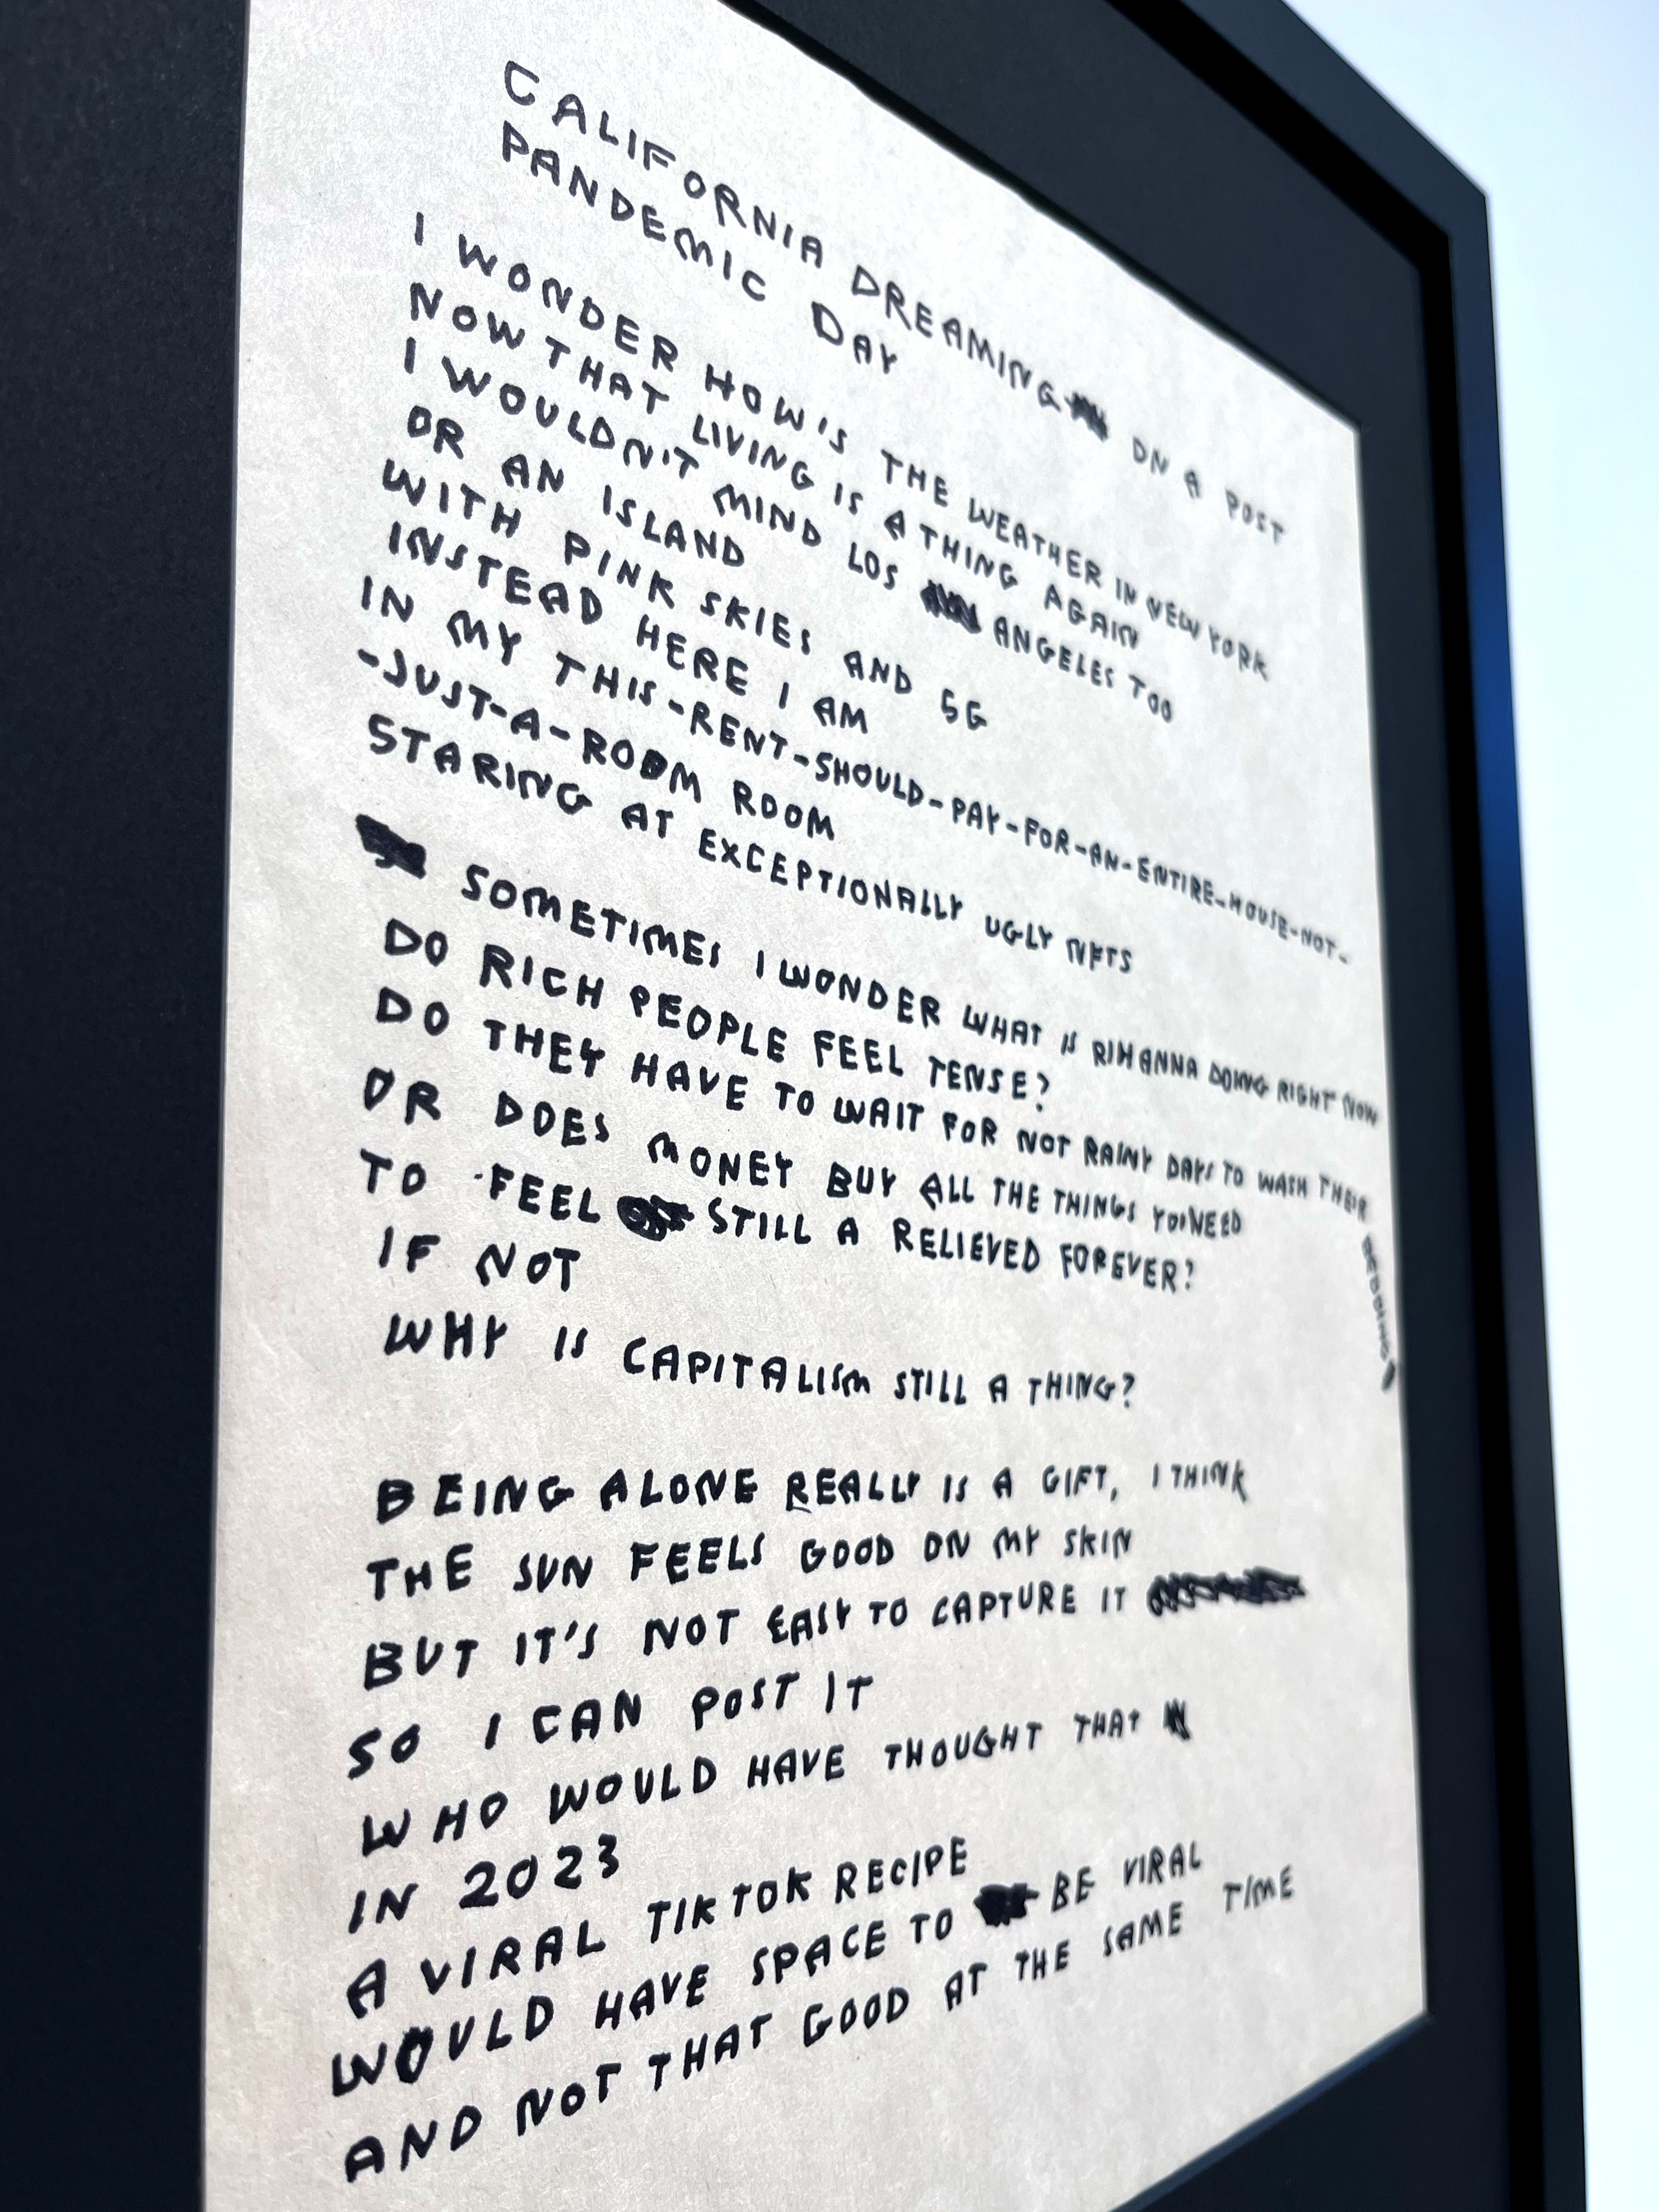 CALIFORNIA DREAMING ON A POST
PANDEMIC DAY
I WONDER HOW'S THE WEATHER IN NEW YORK
NOW THAT LIVING IS A THING AGAIN
I WOULDN'T MIND LOS ANGELES TOO
OR AN ISLAND
WITH PINK SKIES AND 5G
INSTEAD HERE I AM
IN MY THIS-RENT-SHOULD-PAY-FOR-AN-ENTIRE-HOUSE-NOT-
-JUST-A-ROOM ROOM
STARING AT EXCEPTIONALLY UGLY NFTS
SOMETIMES I WONDER WHAT IS RIHANNA DOING RIGHT NOW
DO RICH PEOPLE FEEL TENSE?
DO THEY HAVE TO WAIT FOR NOT RAINY DAYS TO WASH THEIR BEDDING?
OR DOES MONEY BUY ALL THE THINGS YOU NEED
TO FEEL STILL A RELIEVED FOREVER?
IF NOT
WHY IS CAPITALISM STILL A THING?
BEING ALONE REALLY IS A GIFT, I THINK
THE SUN FEELS GOOD ON MY SKIN
BUT IT'S NOT EASY TO CAPTURE IT
SO I CAN POST IT
WHO WOULD HAVE THOUGHT THAT
IN 2023
A VIRAL TIKTOK RECIPE
WOULD HAVE SPACE TO BE VIRAL
AND NOT THAT GOOD AT THE SAME TIME